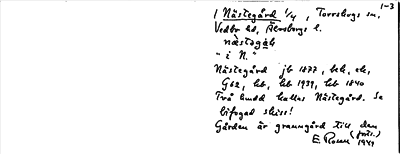 1-3
1 Nästegård 1/4, Torrskogs sn,
Vedbo hd, Älvsborgs l.
næstəgå̀ɽ
" i N."
Nästegård jb 1877, bek, ek,
G62, kb, kb 1939, kb 1840
Två hudd kallas Nästegård. Se
bifogad skiss!
Gården är granngård till den
(forts.)
E. Rosen 1949